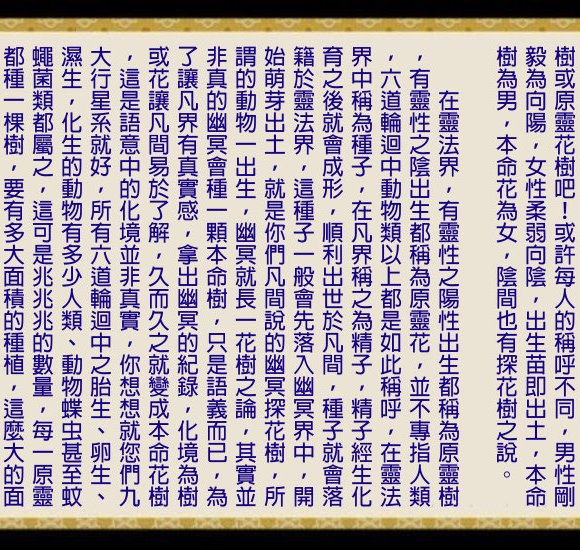 樹或原靈花樹吧！或許每人的稱呼不同，男性剛
毅為向陽，女性柔弱向陰，出生苗即出土，本命
樹為男，本命花為女，陰間也有探花樹之說。
在靈法界，有靈性之陽性出生都稱為原靈樹
，有靈性之陰出生都稱為原靈花，並不專指人類
，六道輪迴中動物類以上都是如此稱呼，在靈法
界中稱為種子，在凡界稱之為精子，精子經生化
育之後就會成形，順利出世於凡間，種子就會落
籍於靈法界，這種子一般會先落入幽冥界中，開
始萌芽出土，就是你們凡間說的幽冥探花樹，所
謂的動物一出生，幽冥就長一花樹之論，其實並
非真的幽冥會種一顆本命樹，只是語義而已，為
了讓凡界有真實感，拿出幽冥的紀錄，化境為樹
或花讓凡間易於了解，久而久之就變成本命花樹
，這是語意中的化境並非真實，你想想就您們九
大行星系就好，所有六道輪迴中之胎生、卵生、
濕生，化生的動物有多少人類、動物蝶虫甚至蚊
蠅菌類都屬之，這可是兆兆兆的數量，每一原靈
都種一棵樹，要有多大面積的種植，這麼大的面